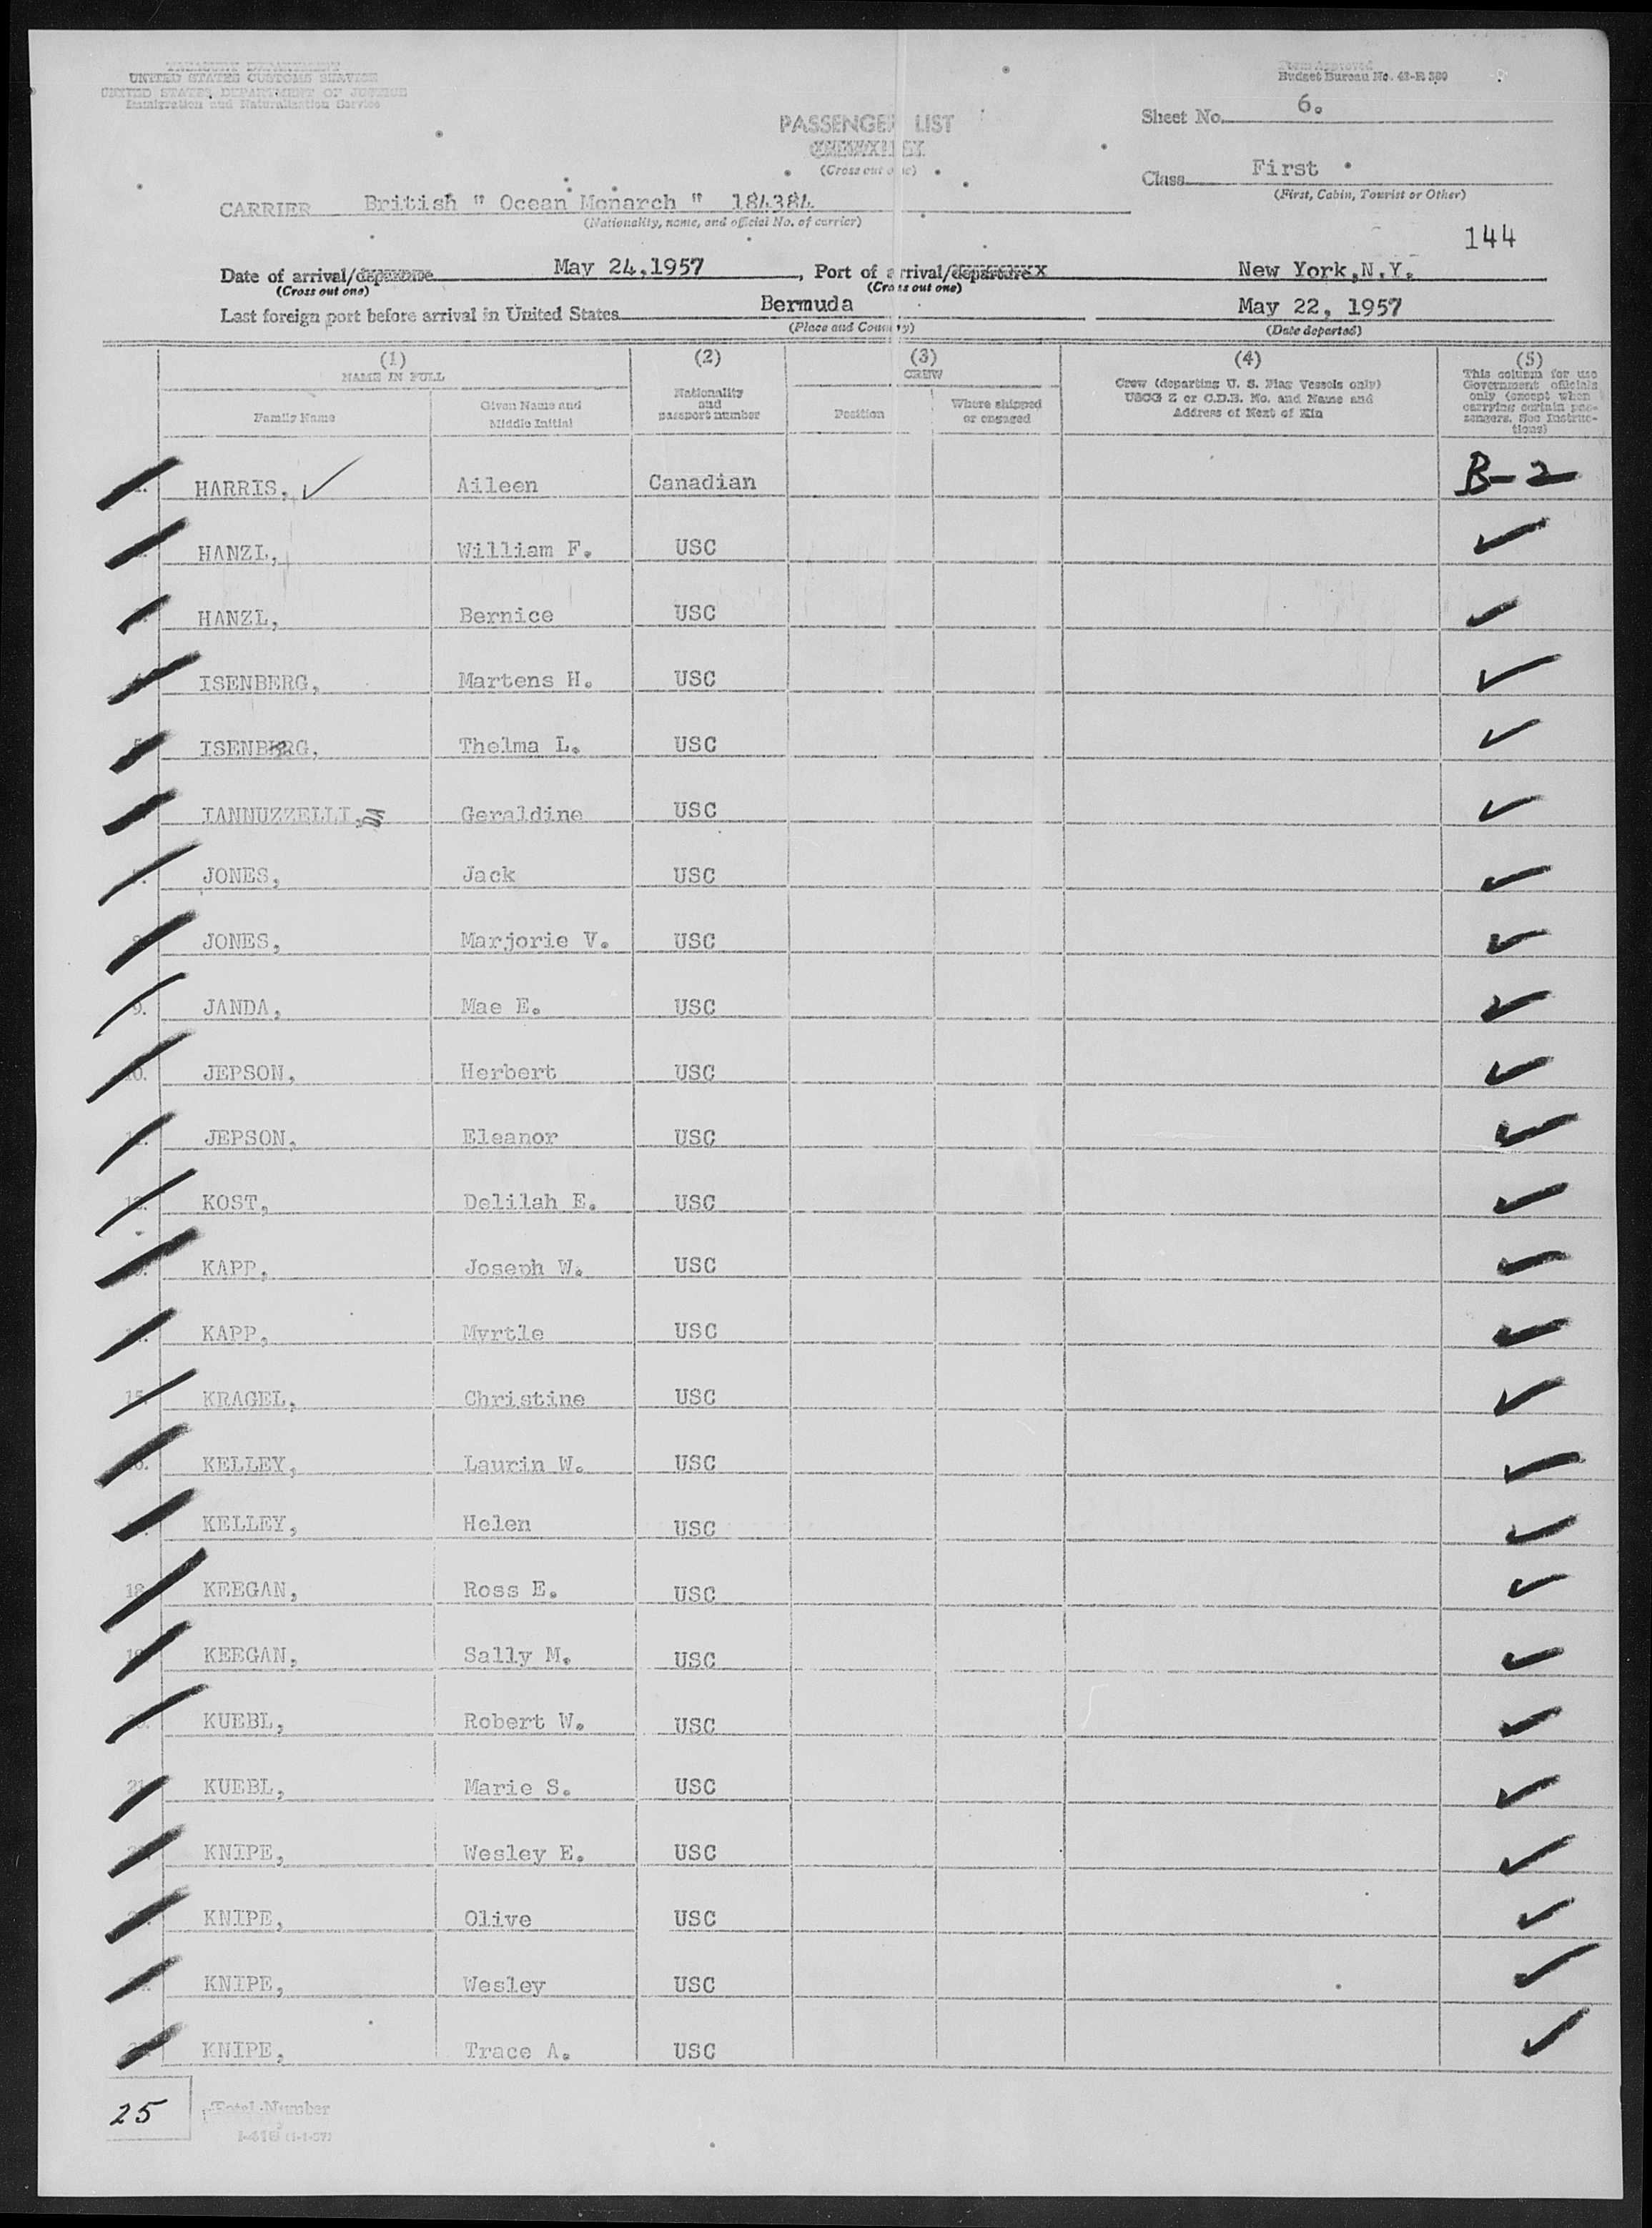 TREASURY DEPARTMENT
UNITED STATES CUSTOMS SERVICE
UNITED STATES DEPARTMENT OF JUSTICE
Immigration and Naturalization Service
Form Approved
Budget Bureau No. 43-R 380
Sheet No. 6.
PASSENGER LIST
(Cross out one)
Class First
(First, Cabin, Tourist or Other)
CARRIER British " Ocean Monarch " 184384
(Nationality, name, and official No. of carrier)
144
Date of arrival/departure May 24,1957, Port of arrival/departure New York,N.Y.
(Cross out one) (Cross out one)
Last foreign port before arrival in United States Bermuda May 22, 1957
(Place and Country) (Date departed)
(1) NAME IN FULL
Family Name
Given Name and Middle Initial
(2) Nationality and passport number
(3) CREW
Position
Where shipped or engaged
(4) Crew (departing U. S. Flag Vessels only) USCG Z or C.D.B. No. and Name and Address of Next of Kin
(5) This column for use Government officials only (except when carrying certain passengers. See Instructions)
HARRIS, ✓ Aileen Canadian B-2
HANZL, William F. USC ✓
HANZL, Bernice USC ✓
ISENBERG, Martens H. USC ✓
5. ISENBERG, Thelma L. USC ✓
IANNUZZELLI, Geraldine USC ✓
JONES, Jack USC ✓
8. JONES, Marjorie V. USC ✓
9. JANDA, Mae E. USC ✓
10. JEPSON, Herbert USC ✓
11. JEPSON, Eleanor USC ✓
12. KOST, Delilah E. USC ✓
KAPP, Joseph W. USC ✓
KAPP, Myrtle USC ✓
15. KRAGEL, Christine USC ✓
16. KELLEY, Laurin W. USC ✓
KELLEY, Helen USC ✓
18. KEEGAN, Ross E. USC ✓
19. KEEGAN, Sally M. USC ✓
20. KUEBL, Robert W. USC ✓
21. KUEBL, Marie S. USC ✓
KNIPE, Wesley E. USC ✓
KNIPE, Olive USC ✓
KNIPE, Wesley USC ✓
KNIPE, Trace A. USC ✓
25 Total Number
I-418 (1-1-57)